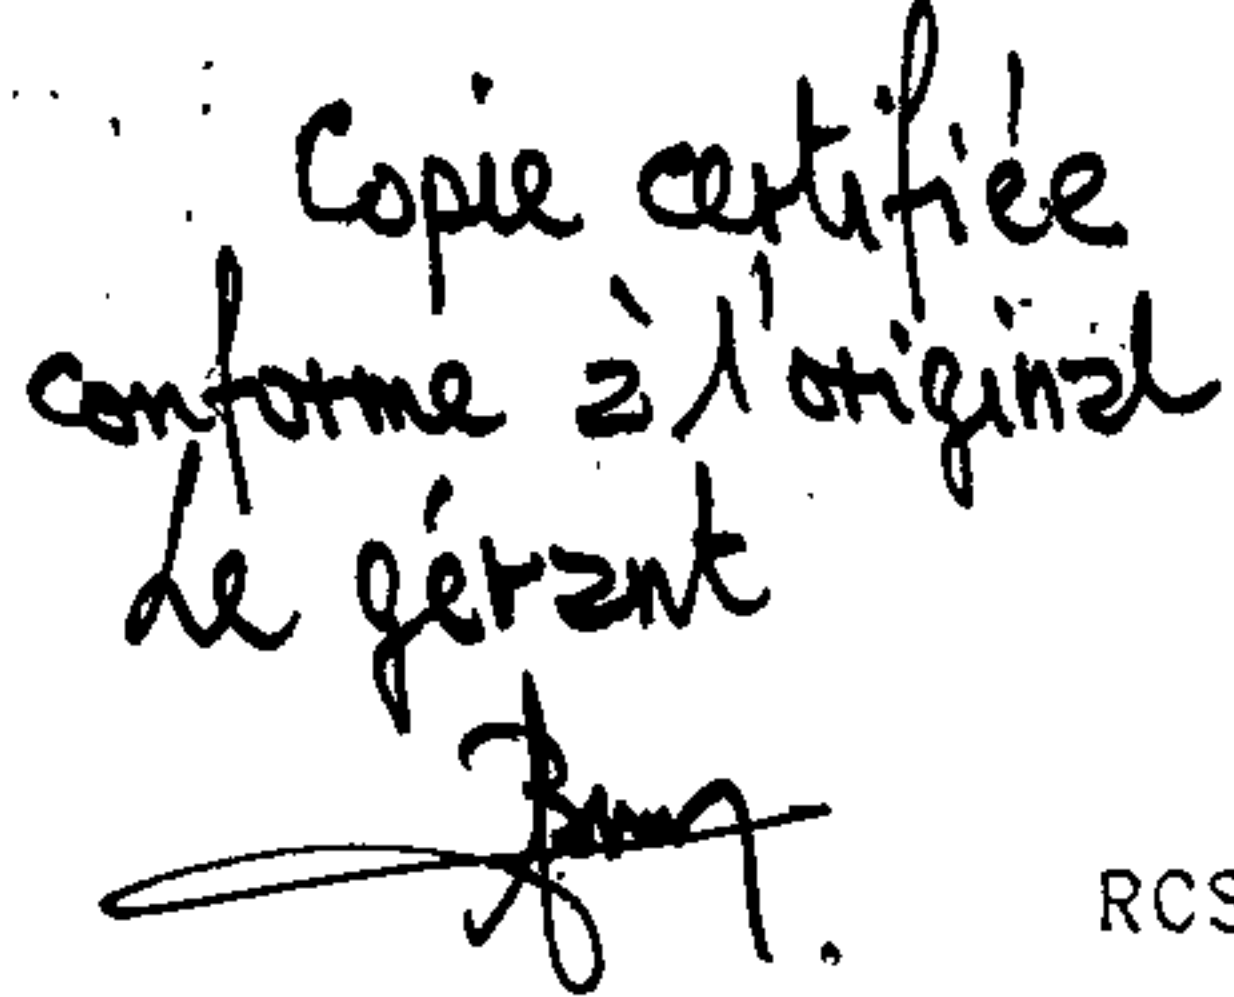 Copie certifiée
conforme à l'original
Le gérant
RCS